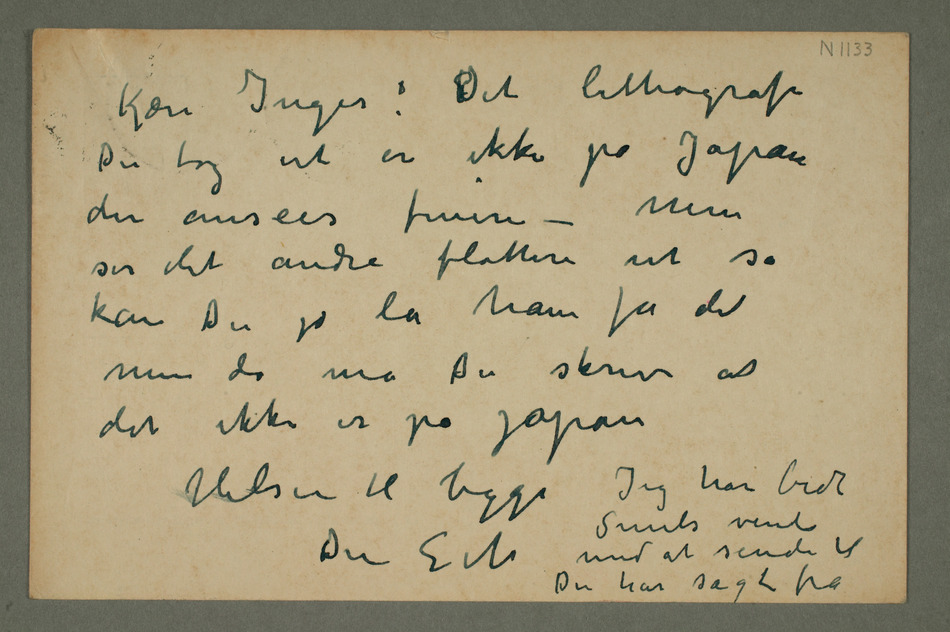 N 1133
Kjære Inger! Det lithografi
Du tog ut er ikke på Japan
der ansees finere – Men
ser det andre flottere ut så
kan Du jo la ham få det
men då må Du skrive at
det ikke er på japan
Hilsen til begge
Din E M
Jeg har bedt
vente
med at sende til
Du har sagt fra